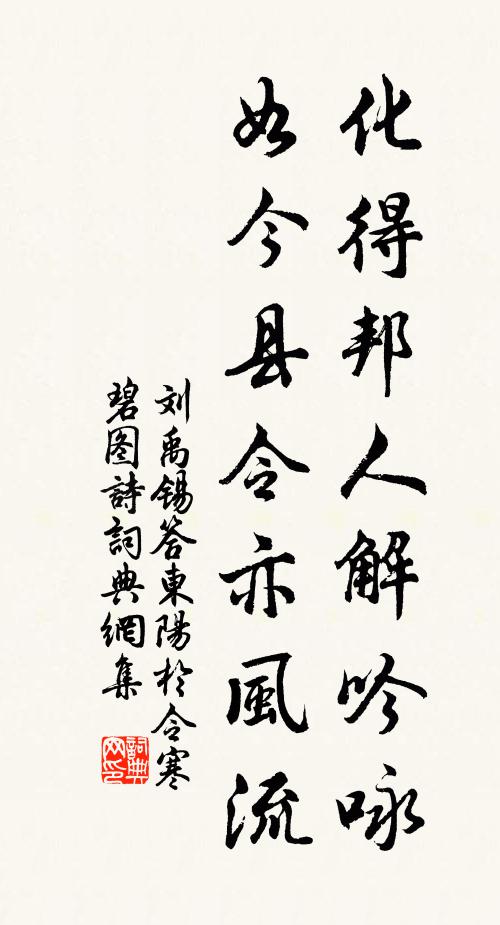 化得邦人解吟咏
如今县令亦風流
刘禹锡答東陽於令寒
碧图詩詞典網集
詞典
网印